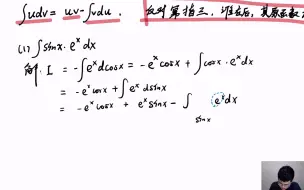 ∫udv = uv-∫vdu. 反对幂指三,谁在后,其原函数
(1) ∫sinx·eˣdx
解. I = -∫eˣdcosx = -eˣcosx + ∫cosx·eˣdx
= -eˣcosx + ∫eˣdsinx
= -eˣcosx + eˣsinx - ∫ eˣdx
sinx